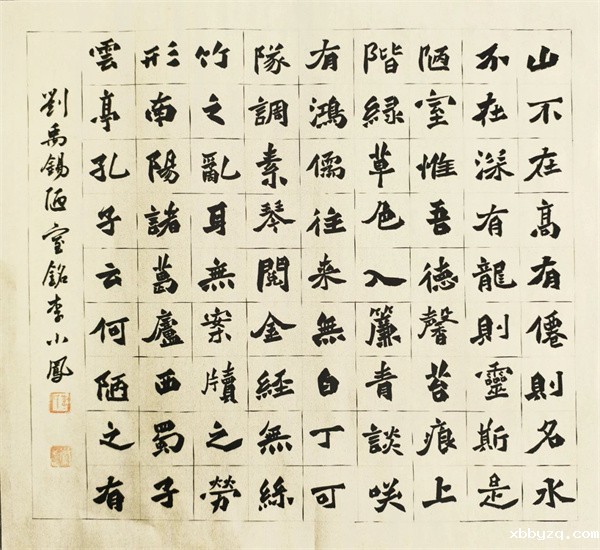 山不在高有僊則名水
不在深有龍則靈斯是
陋室惟吾德馨苔痕上
階緑草色入簾青談咲
有鴻儒往来無白丁可
隊調素琴閲金経無絲
竹之亂耳無案牘之勞
形南陽諸葛廬西蜀子
雲亭孔子云何陋之有
劉禹錫陋室銘李小鳳
xbbyzq.com